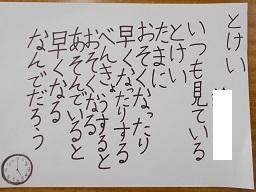 とけい
いつも見ている
とけい
たまに
おそくなったり
早くなったりする
べんきょうすると
おそくなる
あそんでいると
早くなる
なんでだろう